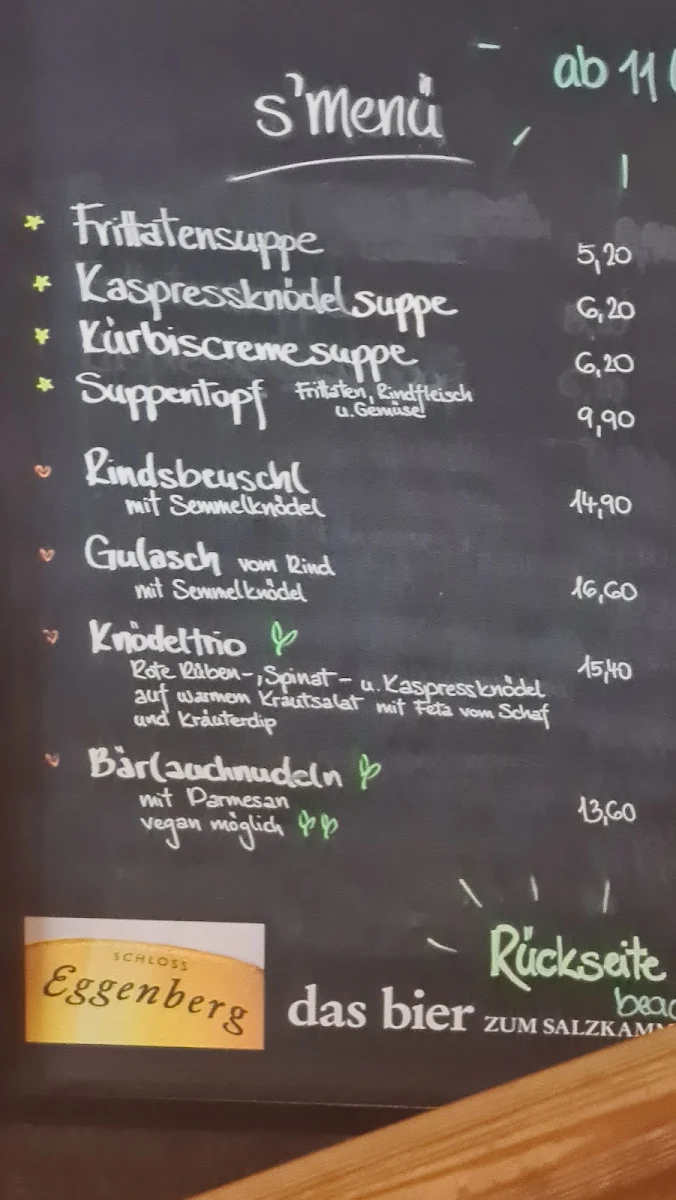 ab 11
s'menü
Frittatensuppe 5,20
Kaspressknödelsuppe 6,20
Kürbiscremesuppe 6,20
Suppentopf Frittaten, Rindfleisch
u. Gemüse! 9,90
Rindsbeuschl
mit Semmelknödel 14,90
Gulasch vom Rind
mit Semmelknödel 16,60
Knödeltrio 15,40
Rote Rüben-, Spinat- u. Kaspressknödel
auf warmem Krautsalat mit Feta vom Schaf
und Kräuterdip
Bärlauchnudeln
mit Parmesan 13,60
vegan möglich
Rückseite
beac
SCHLOSS
Eggenberg
das bier ZUM SALZKAMM